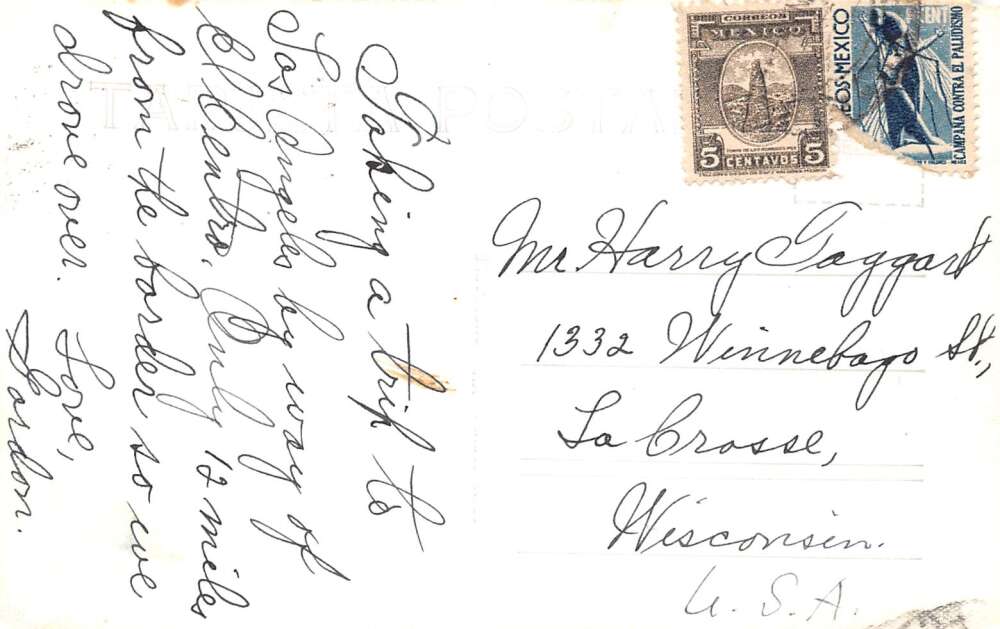 Taking a trip to
Los Angeles by way of
El Centro. Only 12 miles
from the border so we
drove over. Love,
Gordon.
TARJETA POSTAL
CORREOS
MEXICO
5 CENTAVOS 5
EOS·MEXICO
CENT
CAMPAÑA CONTRA EL PALUDISMO
Mr. Harry Taggart
1332 Winnebago St.,
La Crosse,
Wisconsin.
U.S.A.